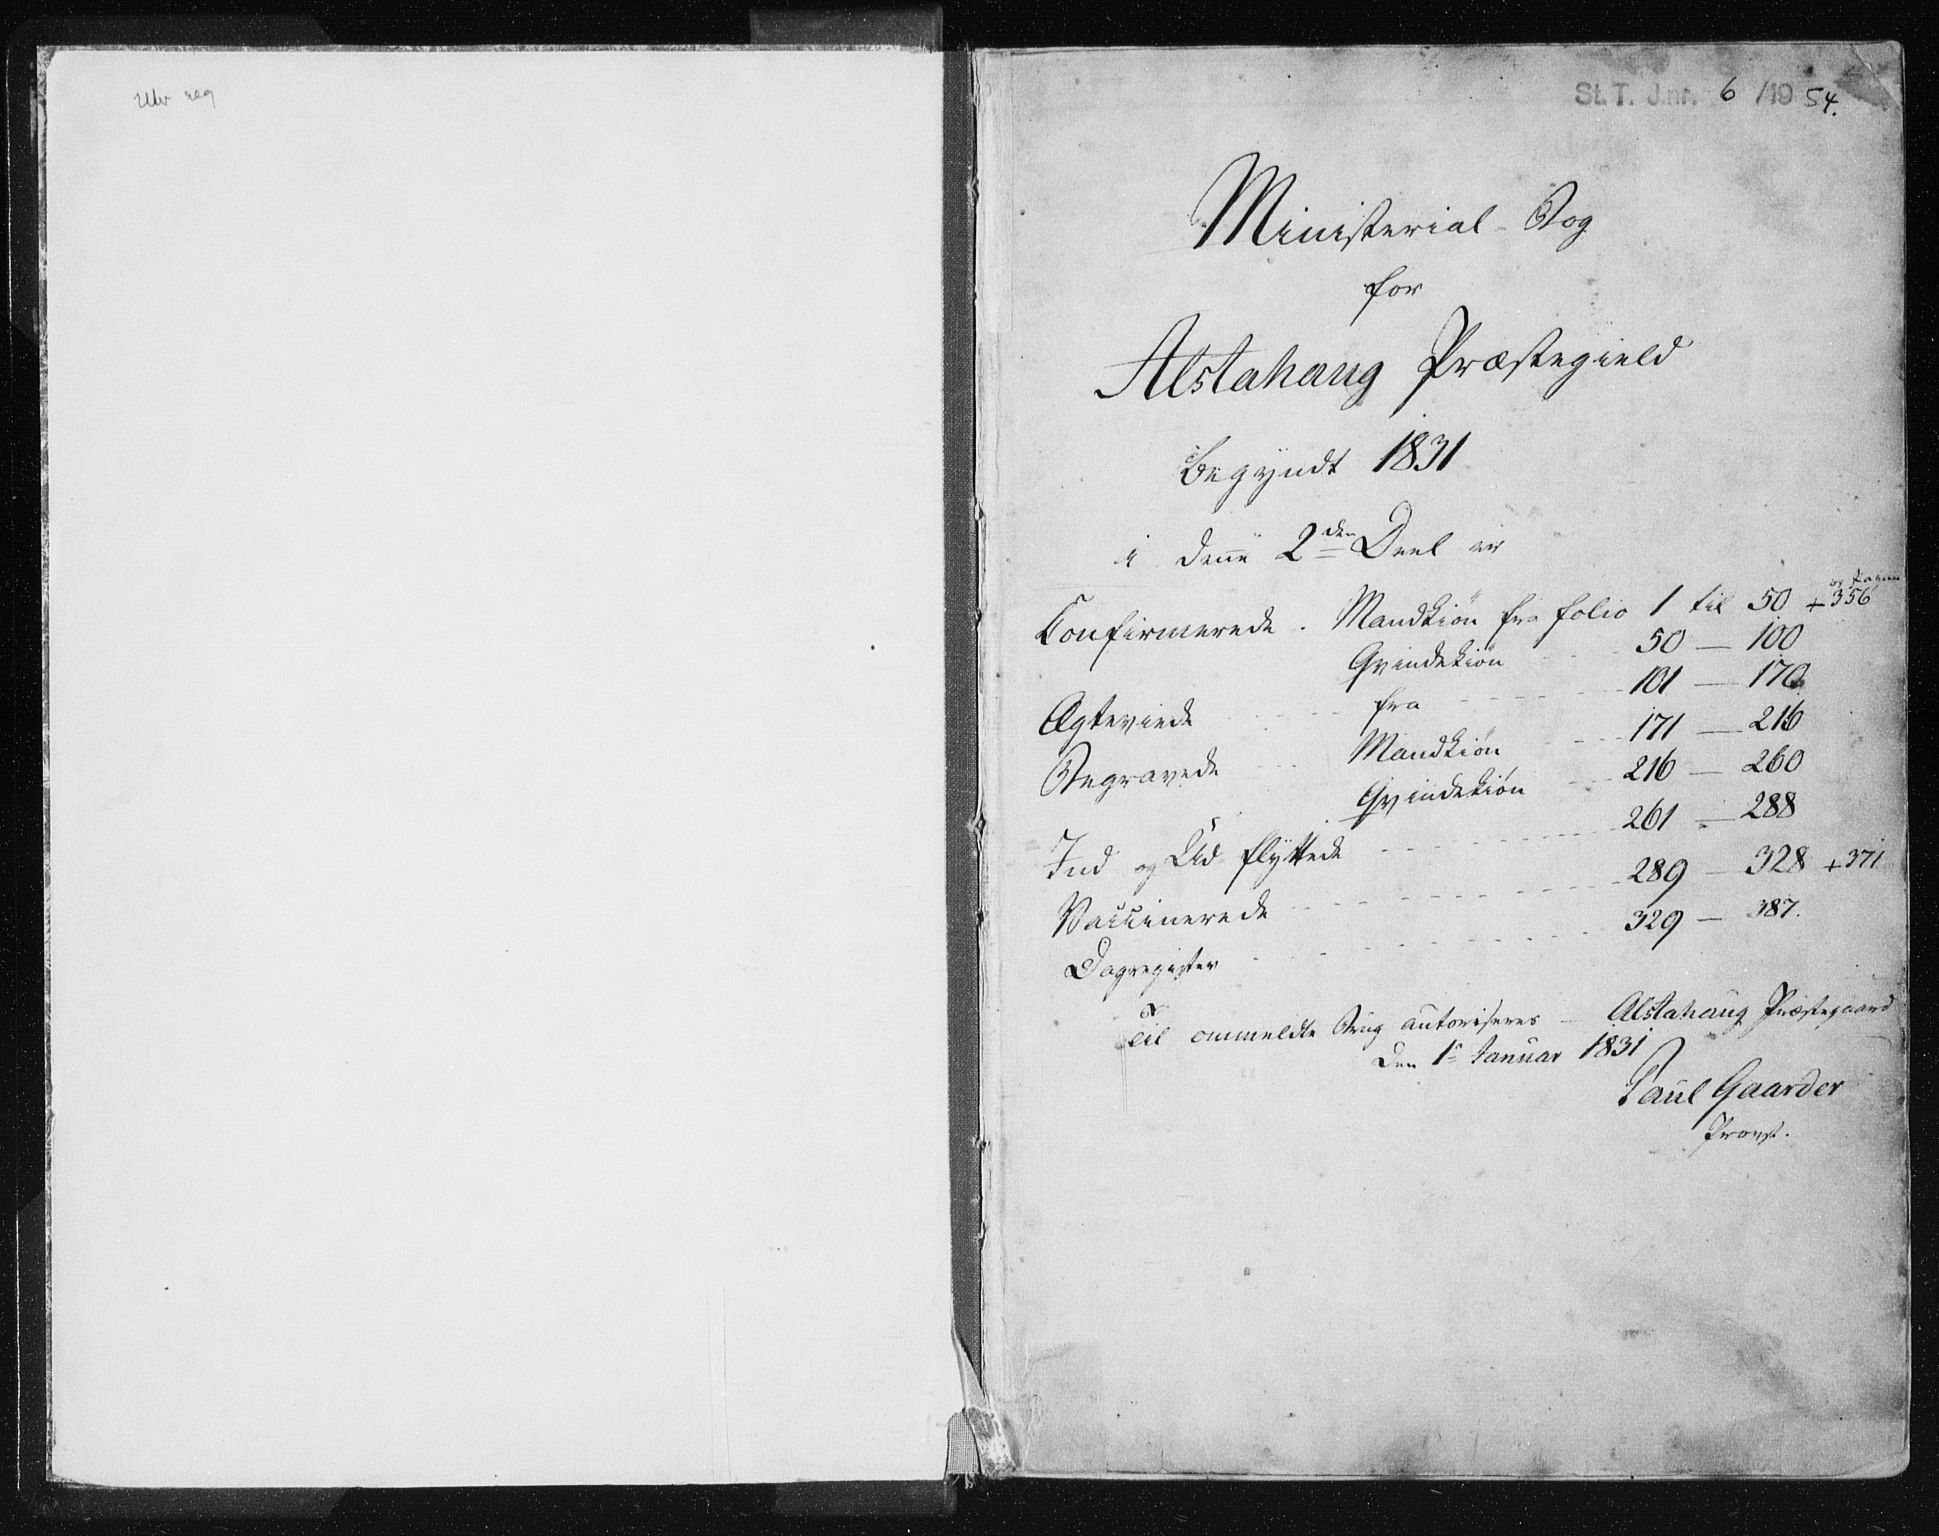 St. T. J.nr. 6 /19 54.
Ministerial-Bog
for
Alstahaug Præstegield
begyndt 1831
i denne 2den Deel er
Confirmerede. Mandkiøn fra folio 1 til 50 +356
Qvindekiøn 50 — 100
Ægteviede fra 101 — 170
Begravede Mandkiøn 171 — 216
Qvindekiøn 216 — 260
Ind og Ud flyttede 261 — 288
Vaccinerede 289 — 328 +371
Dagregister 329 — 387.
Til ommeldte Brug autoriseres — Alstahaug Præstegaard
den 1e Januar 1831
Paul Gaarder
Provst.